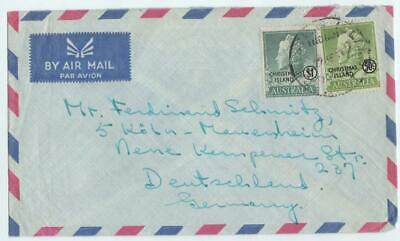 BY AIR MAIL
PAR AVION
CHRISTMAS
ISLAND
$1
AUSTRALIA
CHRISTMAS
ISLAND
50c
AUSTRALIA
Mr. Ferdinand Schmitz,
5 Köln-Mauenheim
Neue Kempener Str.
237
Deutschland.
Germany.